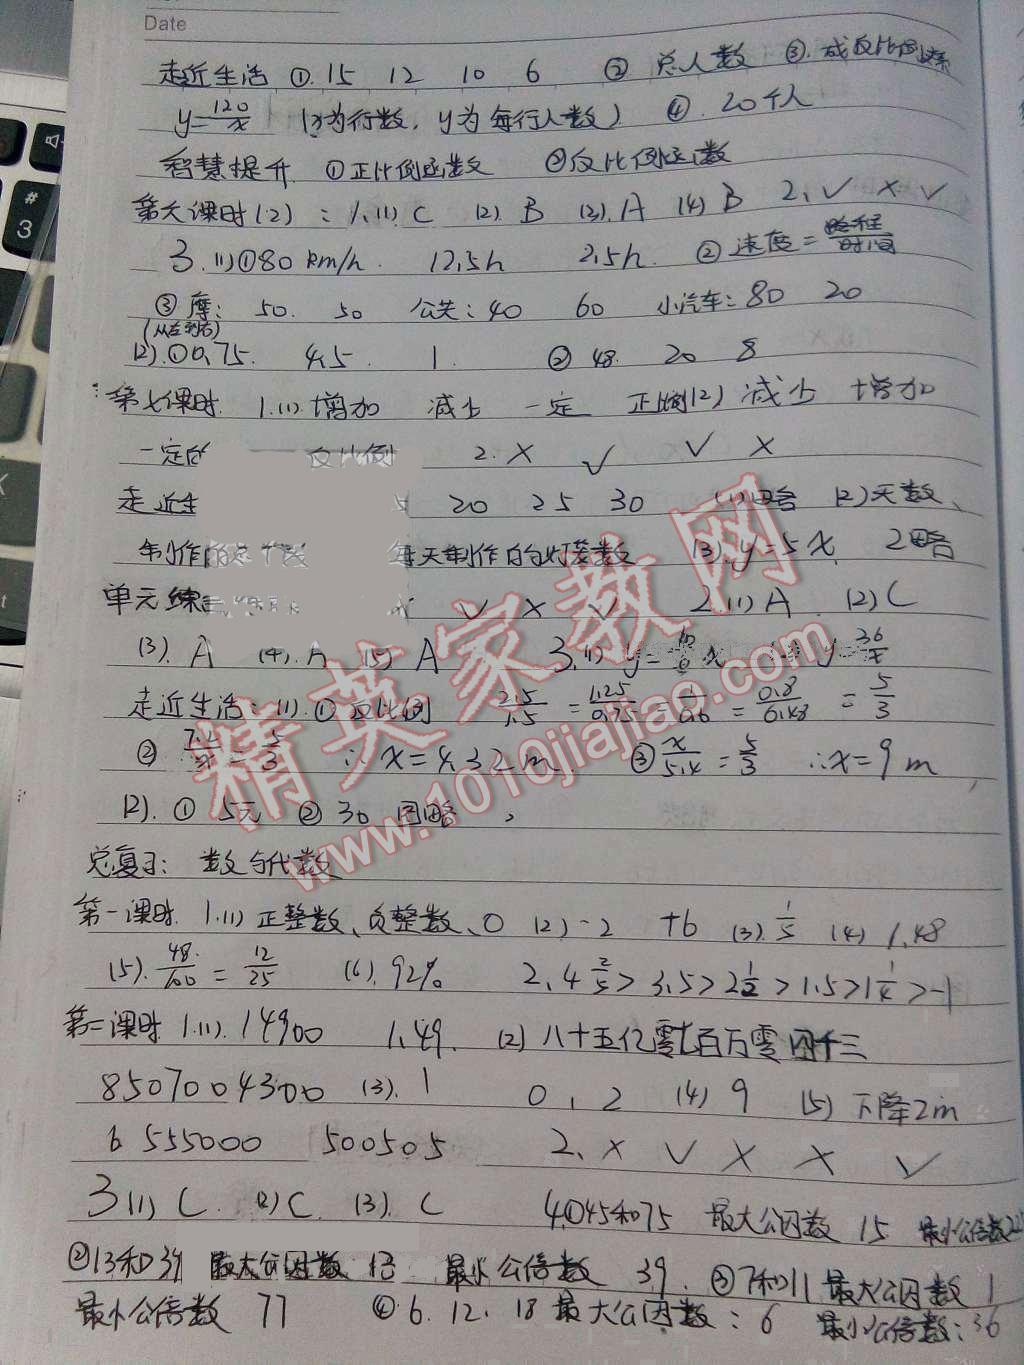 Date
走近生活 ①. 15 12 10 6 ② 总人数 ③. 成反比例关系
y=120/x (x为行数, y为每行人数) ④. 20个人
智慧提升 ①正比例函数 ②反比例函数
第六课时(2): 1.(1) C (2) B (3). A (4) B 2. √ × √
3.(1)①80 km/h. 12.5h 2.5h. ② 速度=路程/时间
③ 摩: 50. 50 公共: 40 60 小汽车: 80 20
(从左到右)
(2).①0.75. 4.5 1. ② 48. 20 8
第七课时 1.(1).增加 减少 一定 正比例(2) 减少 增加
一定的 反比例 2. × √ √ ×
走近生 20 25 30 (1)略 (2)天数、
制作 每天制作的灯笼数 (3). y=5x 2略
单元练 √ × √ 2.(1) A (2) C
(3). A (4). A (5) A 3.(1) y= x y 36/x
走近生活: (1). ① 正比例 2.5/1.5 = 1.25/0.75 = 1/0.6 = 0.8/0.48 = 5/3
② 7.2/x = 5/3 ∴ x=4.32m ③ x/5.4 = 5/3 ∴x=9m
(2). ① 5元 ② 30 图略
总复习: 数与代数
第一课时 1.(1) 正整数、负整数、0 (2) -2 +6 (3). 1/5 (4) 1.48
(5). 48/100 = 12/25 (6). 92% 2. 4 2/5 > 3.5 > 2 1/2 > 1.5 > 1 1/4 > -1
第二课时 1.(1). 14900 1.49. (2) 八十五亿零七百万零四千三
8507004300 (3). 1 0, 2 (4) 9 (5) 下降2m
6 555000 500505 2. × √ × × √
3(1) C (2) C. (3). C 4①45和75 最大公因数 15 最小公倍数
②13和39 最大公因数 13 最小公倍数 39. ③7和11 最大公因数 1
最小公倍数 77 ④ 6. 12. 18 最大公因数: 6 最小公倍数: 36
精英家教网
www.1010jiajiao.com
#
3